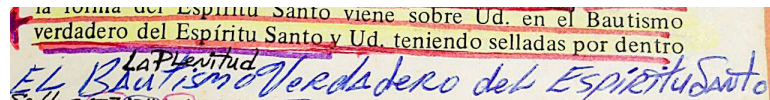 la forma del Espíritu Santo viene sobre Ud. en el Bautismo
verdadero del Espíritu Santo y Ud. teniendo selladas por dentro
LA PLENitud
EL BAUTISMO VERdAdERO del ESPÍRITU SANTO